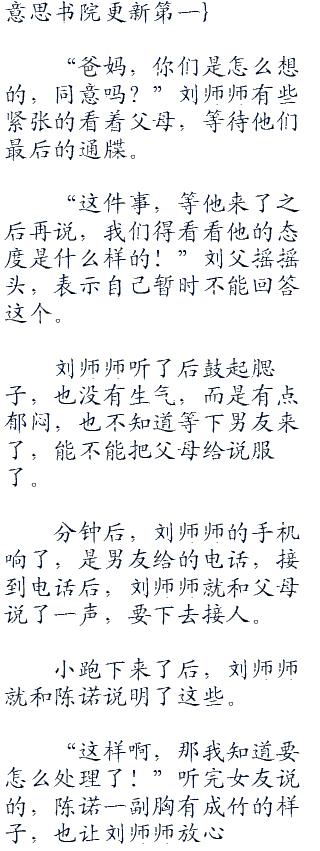 意思书院更新第一}
“爸妈，你们是怎么想
的，同意吗？”刘师师有些
紧张的看着父母，等待他们
最后的通牒。
“这件事，等他来了之
后再说，我们得看看他的态
度是什么样的！”刘父摇摇
头，表示自己暂时不能回答
这个。
刘师师听了后鼓起腮
子，也没有生气，而是有点
郁闷，也不知道等下男友来
了，能不能把父母给说服
了。
分钟后，刘师师的手机
响了，是男友给的电话，接
到电话后，刘师师就和父母
说了一声，要下去接人。
小跑下来了后，刘师师
就和陈诺说明了这些。
“这样啊，那我知道要
怎么处理了！”听完女友说
的，陈诺一副胸有成竹的样
子，也让刘师师放心